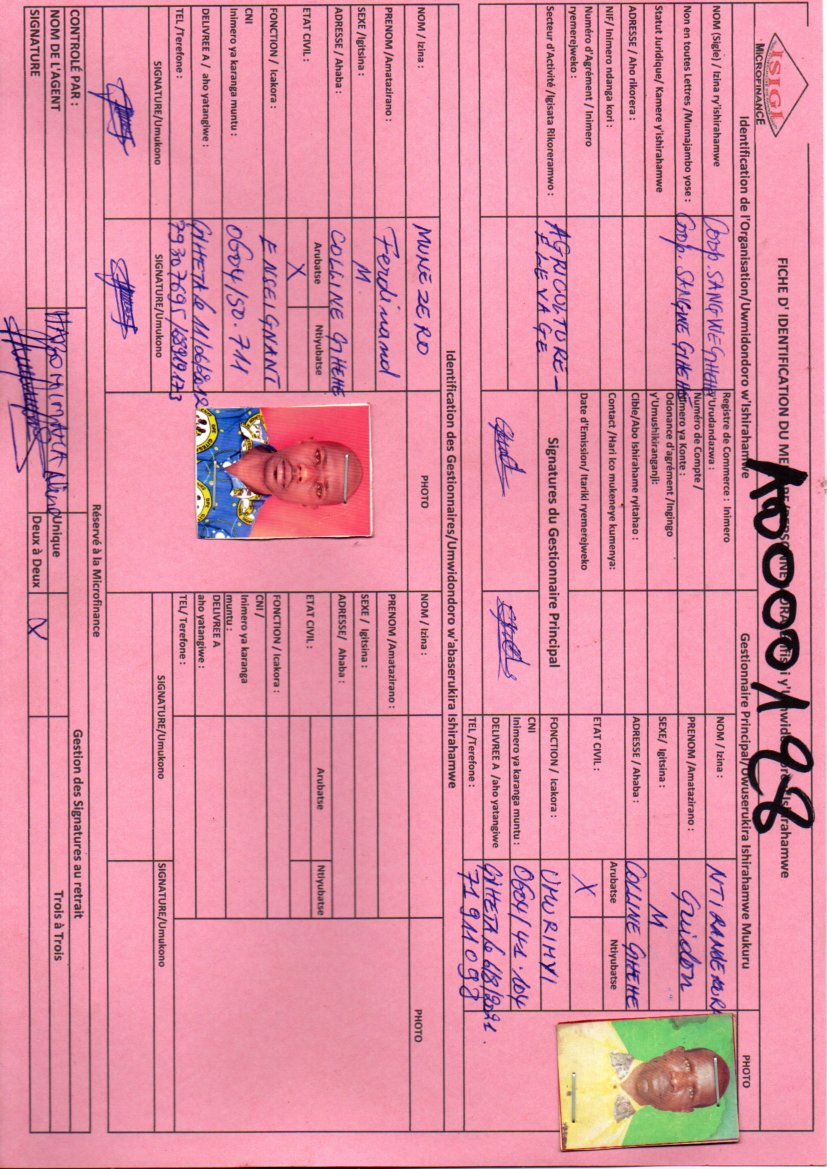 ISIGI
MICROFINANCE
FICHE D' IDENTIFICATION DU
10000198
Identification de l'Organisation/Umwidondoro w'Ishirahamwe
Gestionnaire Principal/Uwuserukira Ishirahamwe Mukuru
PHOTO
NOM (Sigle) / Izina ry'ishirahamwe
Coop. SANGWE GIHEHE
Registre de Commerce : Inimero
y'Urudandazwa :
NOM / Izina :
Non en toutes Lettres /Mumajambo yose :
Coop. SANGWE GIHEHE
Numéro de Compte /
Inimero ya Konte :
PRENOM /Amatazirano :
Guidon
Statut Juridique/ Kamere y'ishirahamwe
Odonance d'agrément /Ingingo
y'Umushikiranganji:
SEXE/ Igitsina :
M
ADRESSE / Aho rikorera :
Cible/Abo Ishirahame ryitaho :
ADRESSE / Ahaba :
COLLINE GIHEHE
NIF/ Inimero ndanga kori :
Contact /Hari ico mukeneye kumenya:
ETAT CIVIL :
Arubatse
Ntiyubatse
X
Numéro d'Agrément / Inimero
ryemerejweko :
Date d'Emission/ Itariki ryemerejweko
Secteur d'Activité /Igisata Rikoreramwo :
AGRICULTURE-
ELEVAGE
Signatures du Gestionnaire Principal
FONCTION / Icakora :
UMURIMYI
CNI
Inimero ya karanga muntu :
0604/41.104
DELIVREE A /aho yatangiwe
TEL /Terefone :
71911098
Identification des Gestionnaires/Umwidondoro w'abaserukira Ishirahamwe
NOM / Izina :
MUNEZERO
PHOTO
NOM / Izina :
PHOTO
PRENOM /Amatazirano :
Ferdinand
PRENOM /Amatazirano :
SEXE /Igitsina :
M
SEXE / Igitsina :
ADRESSE / Ahaba :
COLLINE GIHEHE
ADRESSE/ Ahaba :
ETAT CIVIL :
Arubatse
Ntiyubatse
X
ETAT CIVIL :
Arubatse
Ntiyubatse
FONCTION / Icakora :
ENSEIGNANT
FONCTION / Icakora :
CNI
Inimero ya karanga muntu :
0604/50.711
CNI /
Inimero ya karanga
muntu :
DELIVREE A / aho yatangiwe :
GIHETA le
DELIVREE A
aho yatangiwe :
TEL /Terefone :
TEL/ Terefone :
SIGNATURE/Umukono
SIGNATURE/Umukono
SIGNATURE/Umukono
SIGNATURE/Umukono
Réservé à la Microfinance
CONTROLÉ PAR :
Gestion des Signatures au retrait
NOM DE L'AGENT
Unique
Trois à Trois
SIGNATURE
Deux à Deux
X